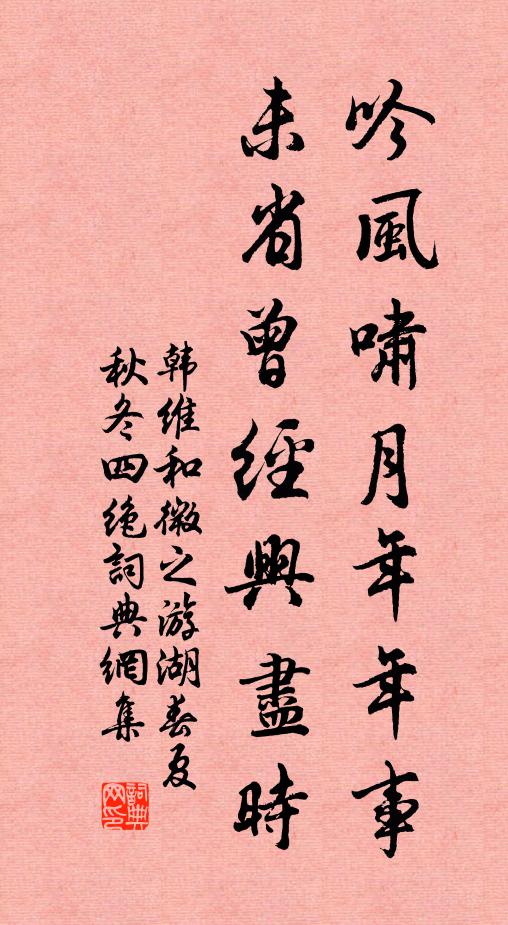 吟風嘯月年年事
未省曾經興盡時
韩維和微之游湖春夏
秋冬四绝詞典網集
詞典网印